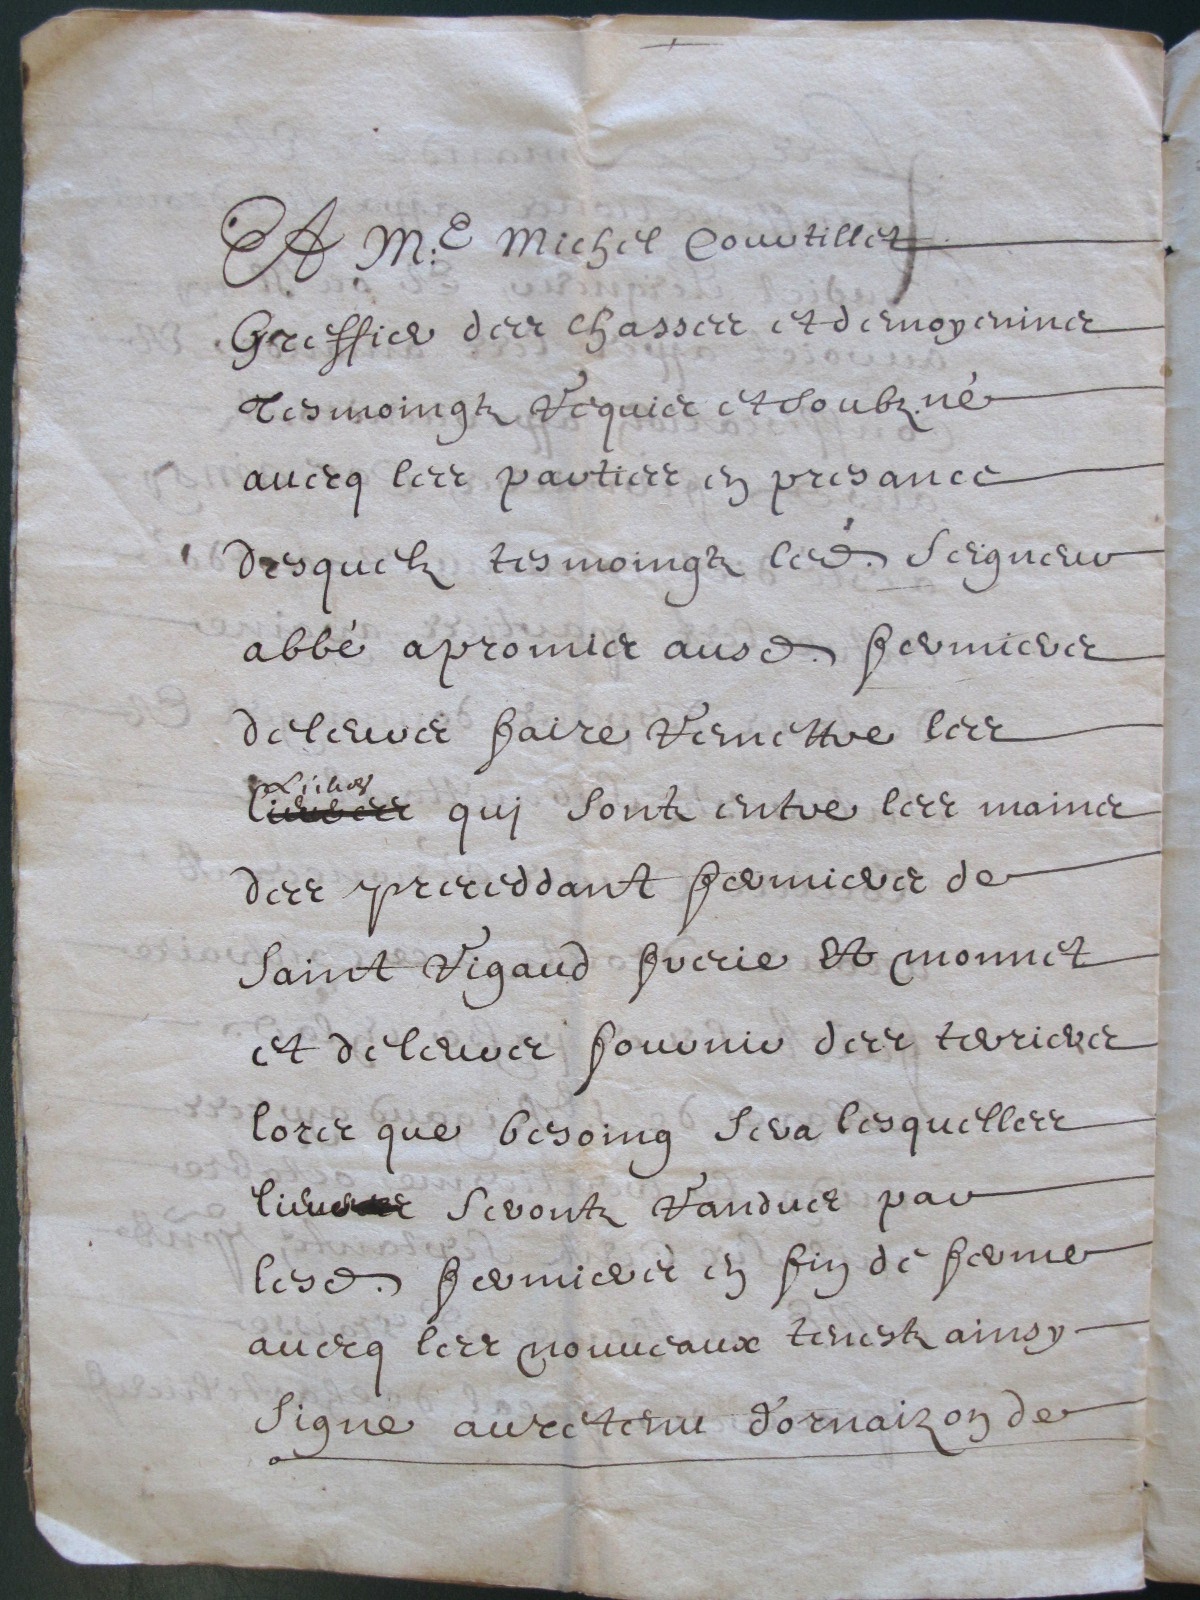 A M.e Michel Courtillet
Greffier des chasses et de noyenines
tesmoingtz requis et soubz.né
avecq les parties en presance
desquelz tesmoingtz led. Seigneur
abbé a promis ausd. fermiers
de leurs faire remettre les
lieves qui sont entre les mains
des preceddant fermiers de
Saint Rigaud frerie et monnet
et de leurs fournir des terriers
lors que besoing sera lesquelles
lieves seront randues par
lesd. fermiers en fin de ferme
avecq les nouveaux tenestz ainsy
Signe au retenu d'ornaizon de